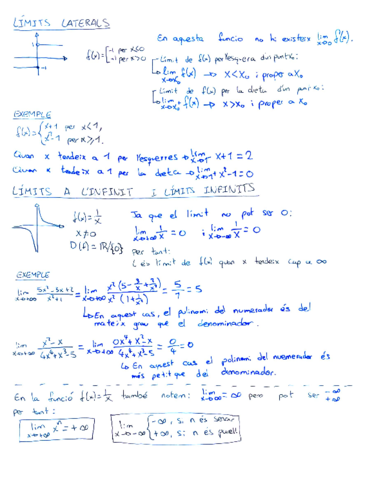 LÍMITS LATERALS
En aquesta funcio no hi existeix lim x→0 f(x).
f(x)= { 1 per x≤0
-1 per x>0
Limit de f(x) per l'esquerra d'un punt xo:
lim x→xo⁻ f(x) → x<xo i proper a xo
Limit de f(x) per la dreta d'un punt xo:
lim x→xo⁺ f(x) → x>xo i proper a xo
EXEMPLE
f(x)= { x+1 per x<1,
x²-1 per x≥1.
Quan x tendeix a 1 per l'esquerres → lim x→1⁻ x+1=2
Quan x tendeix a 1 per la dreta → lim x→1⁺ x²-1=0
LÍMITS A L'INFINIT I LÍMITS INFINITS
f(x)=1/x
x≠0
D(f)=ℝ/{0}
Ja que el limit no pot ser 0:
lim x→+∞ 1/x = 0 i lim x→-∞ 1/x = 0
Per tant:
L és limit de f(x) quan x tendeix cap a ∞
EXEMPLE
lim x→+∞ (5x²-3x+2)/(x²+1) = lim x→+∞ x²(5-3/x+2/x²)/x²(1+1/x²) = 5/1 = 5
↳ En aquest cas, el polinomi del numerador és del
mateix grau que el denominador.
lim x→+∞ (x³-x)/(4x⁴+x³-5) = lim x→+∞ (0x⁴+x³-x)/(4x⁴+x³-5) = 0/4 = 0
↳ En aquest cas el polinomi del numerador és
més petit que del denominador.
En la funció f(x)=1/x també notem: lim x→0 = ∞ pero pot ser -∞ +∞
per tant:
lim x→+∞ xⁿ = +∞
lim x→-∞ { -∞, si n és senar
+∞, si n és parell